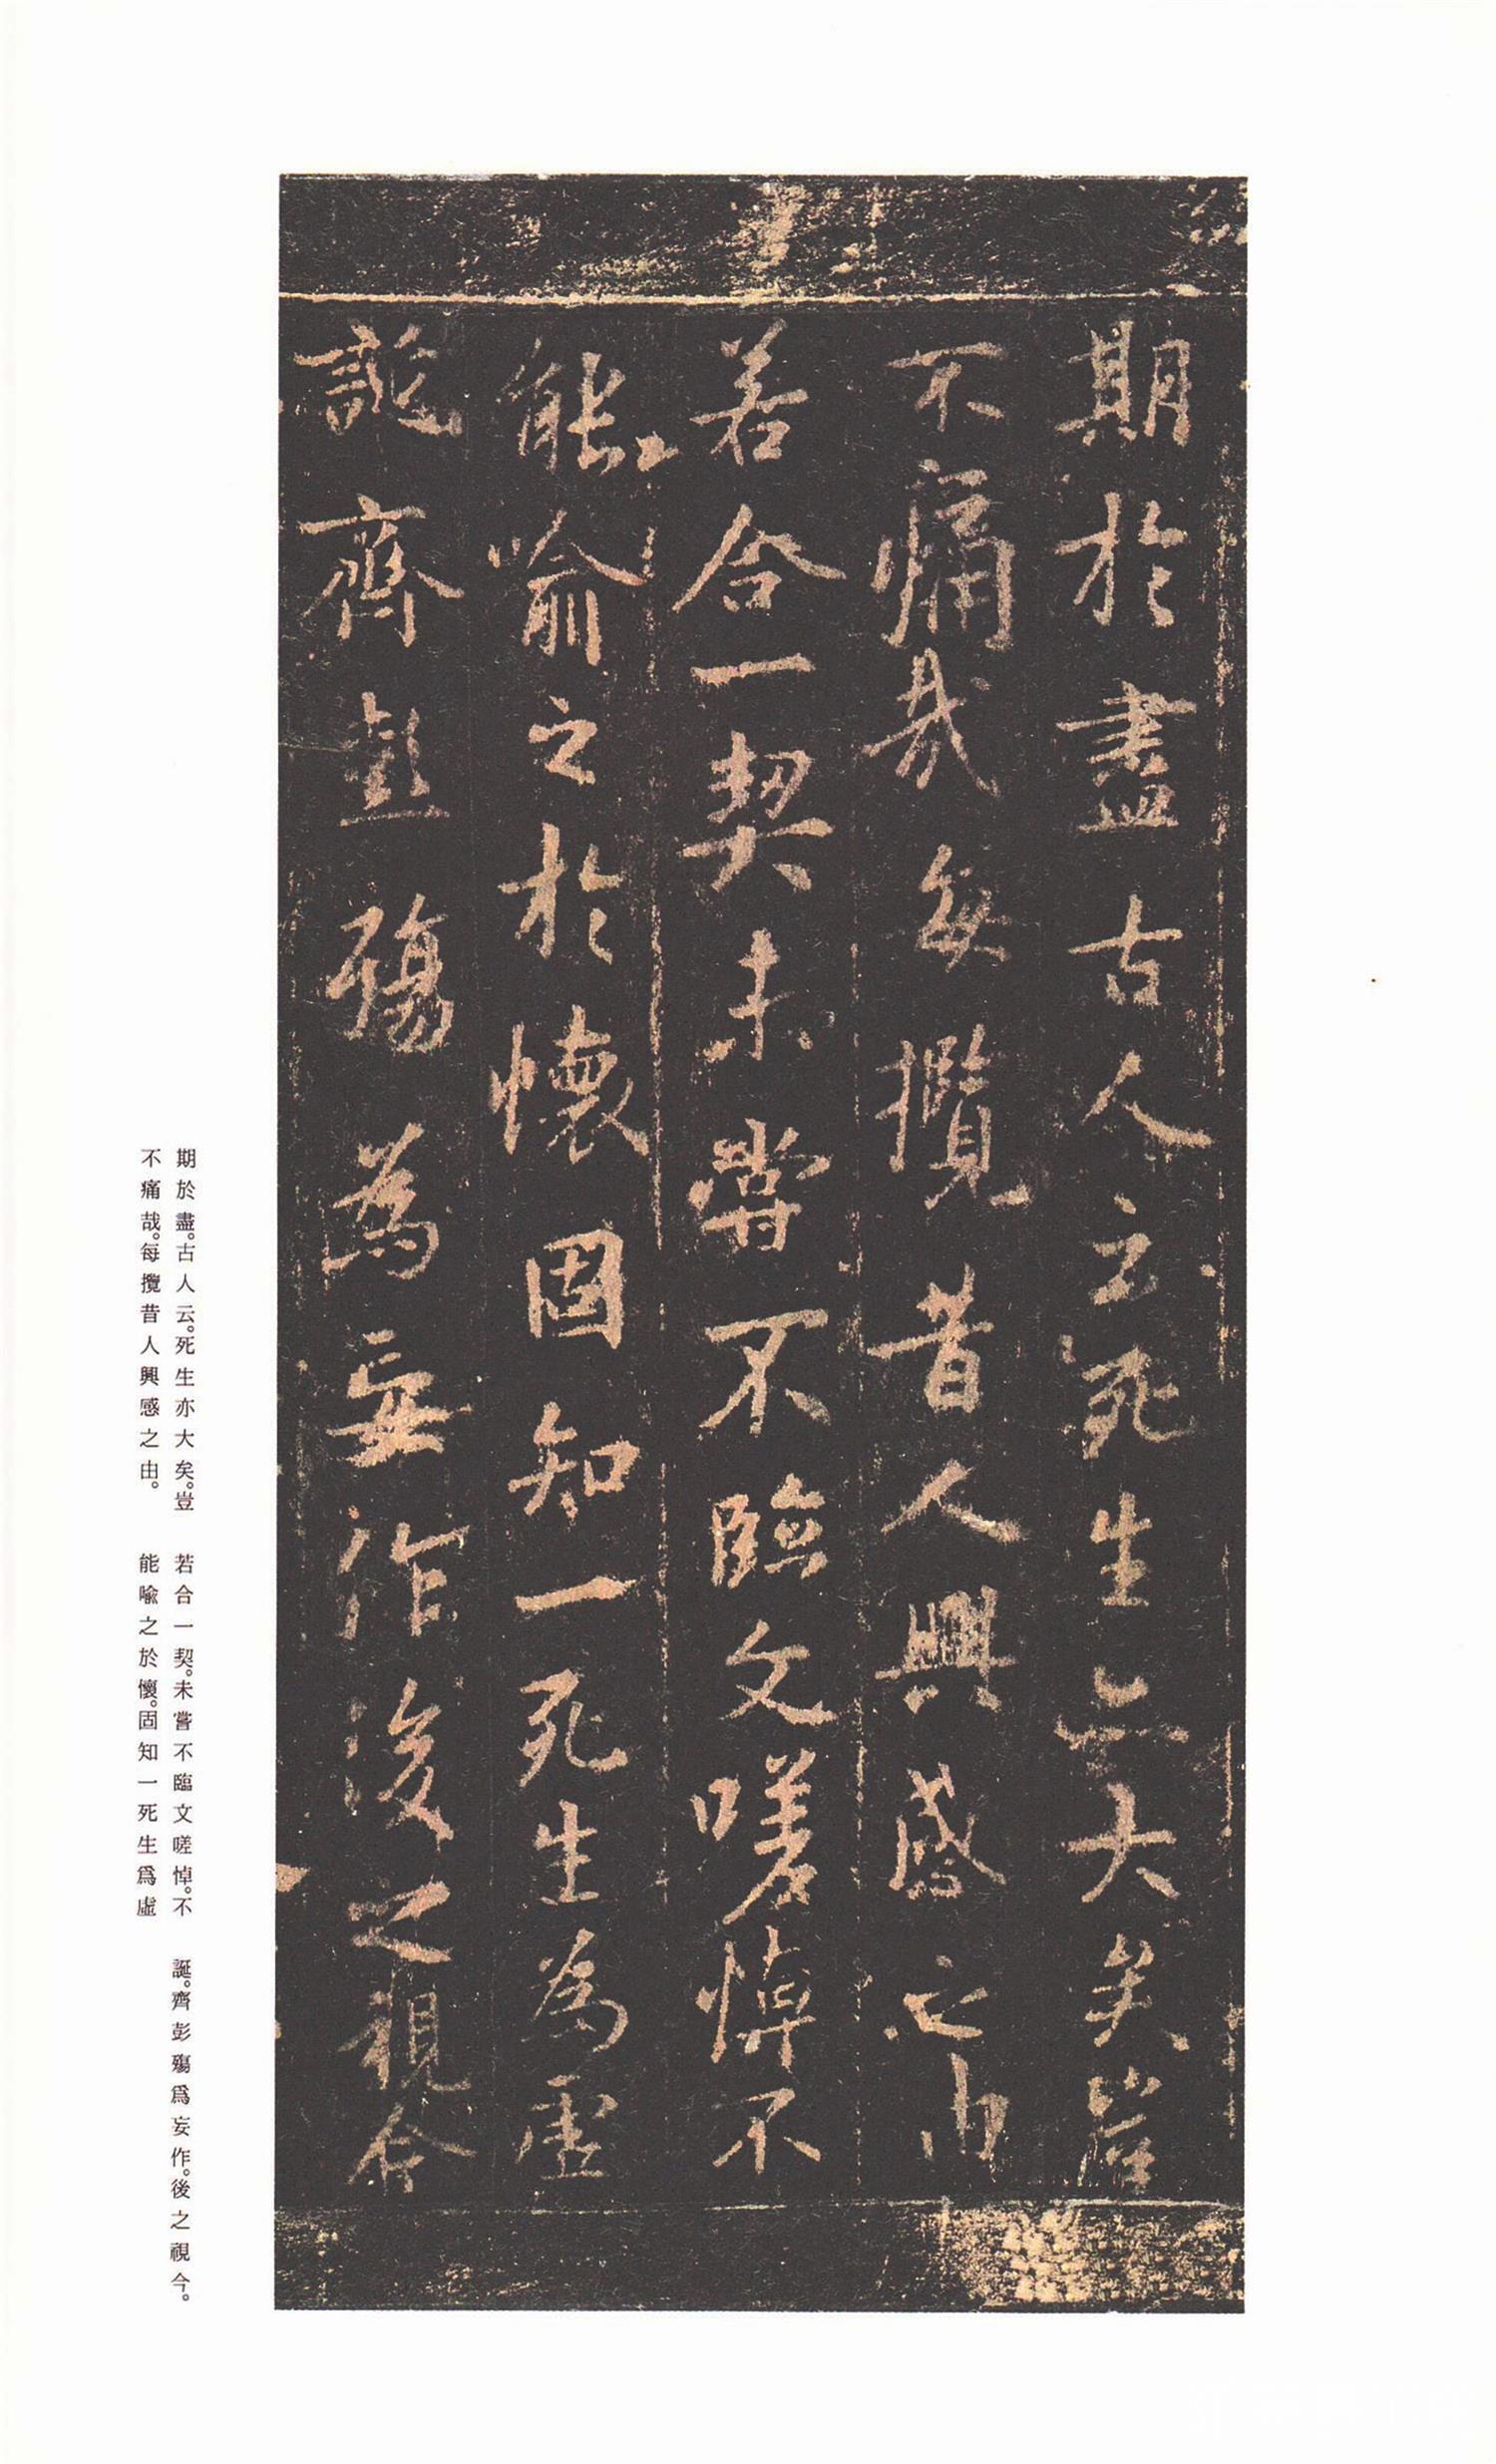 期於盡古人云死生亦大矣豈
不痛哉每攬昔人興感之由
若合一契未嘗不臨文嗟悼不
能喻之於懷固知一死生為虛
誕齊彭殤為妄作後之視今
期於盡。古人云。死生亦大矣。豈
不痛哉。每攬昔人興感之由。
若合一契。未嘗不臨文嗟悼。不
能喻之於懷。固知一死生爲虛
誕。齊彭殤爲妄作。後之視今。